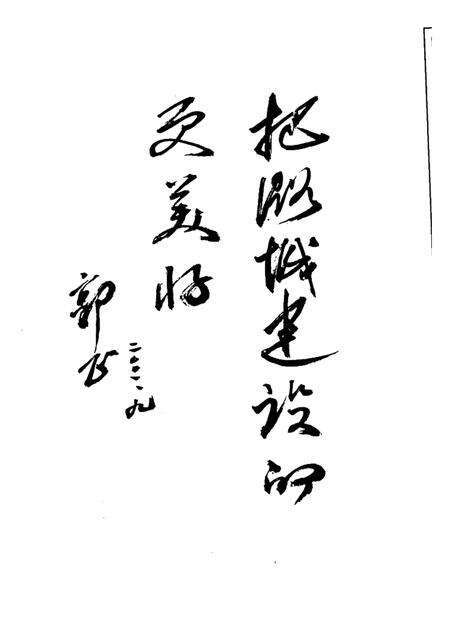 把潞城建设的
更美好
郭正
二〇〇一、九